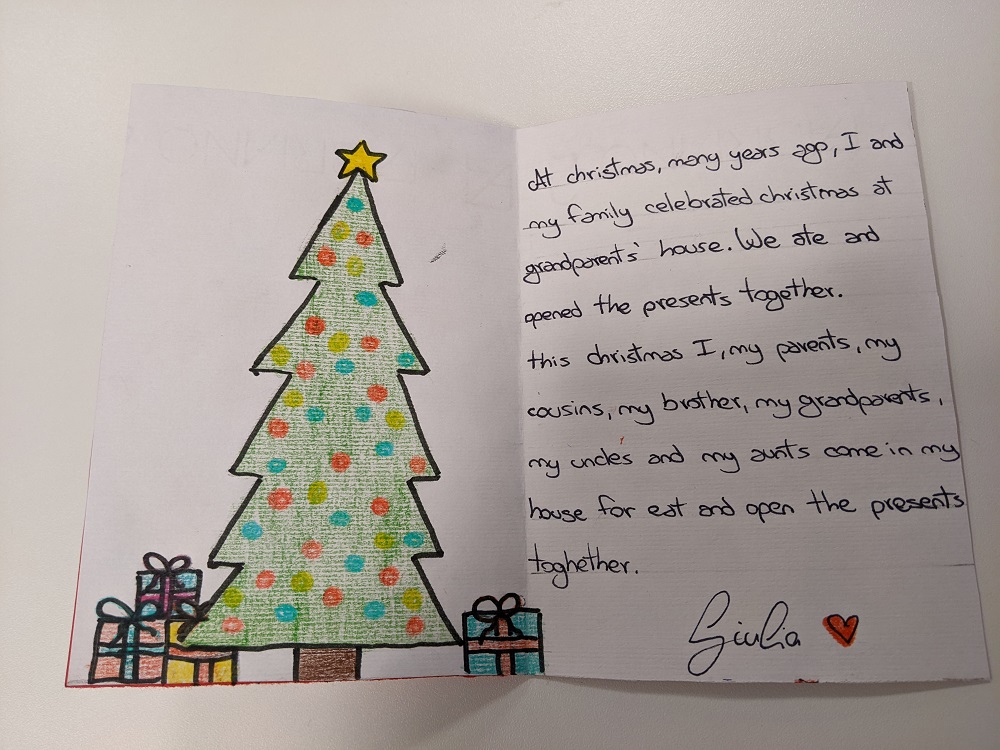 At christmas, many years ago, I and
my family celebrated christmas at
grandparents' house. We ate and
opened the presents together.
this christmas I, my parents, my
cousins, my brother, my grandparents,
my uncles and my aunts come in my
house for eat and open the presents
toghether.
Giulia